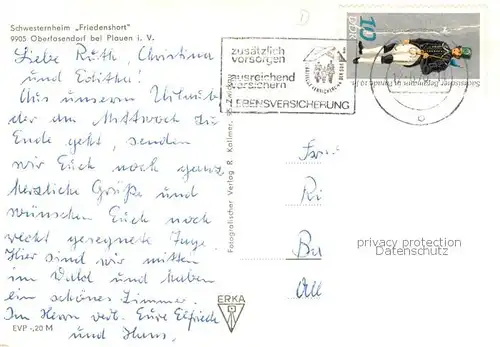 Schwesternheim „Friedenshort"
9905 Oberlosendorf bei Plauen i. V.
Liebe Ruth, Christina
und Editha!
Aus unserem Urlaub
der am Mittwoch zu
Ende geht, senden
wir Euch noch ganz
herzliche Grüße und
wünschen Euch noch
recht gesegnete Tage.
Hier sind wir mitten
im Wald und haben
ein schönes Zimmer.
Im Herrn verb. Eure Elfriede
und Hans.
EVP -,20 M
Fotografischer Verlag R. Kallmer, 95 Zwickau
ERKA
zusätzlich
vorsorgen
ausreichend
versichern
LEBENSVERSICHERUNG
DDR
10
Fam
Ri
Ba
Oll
privacy protection
Datenschutz